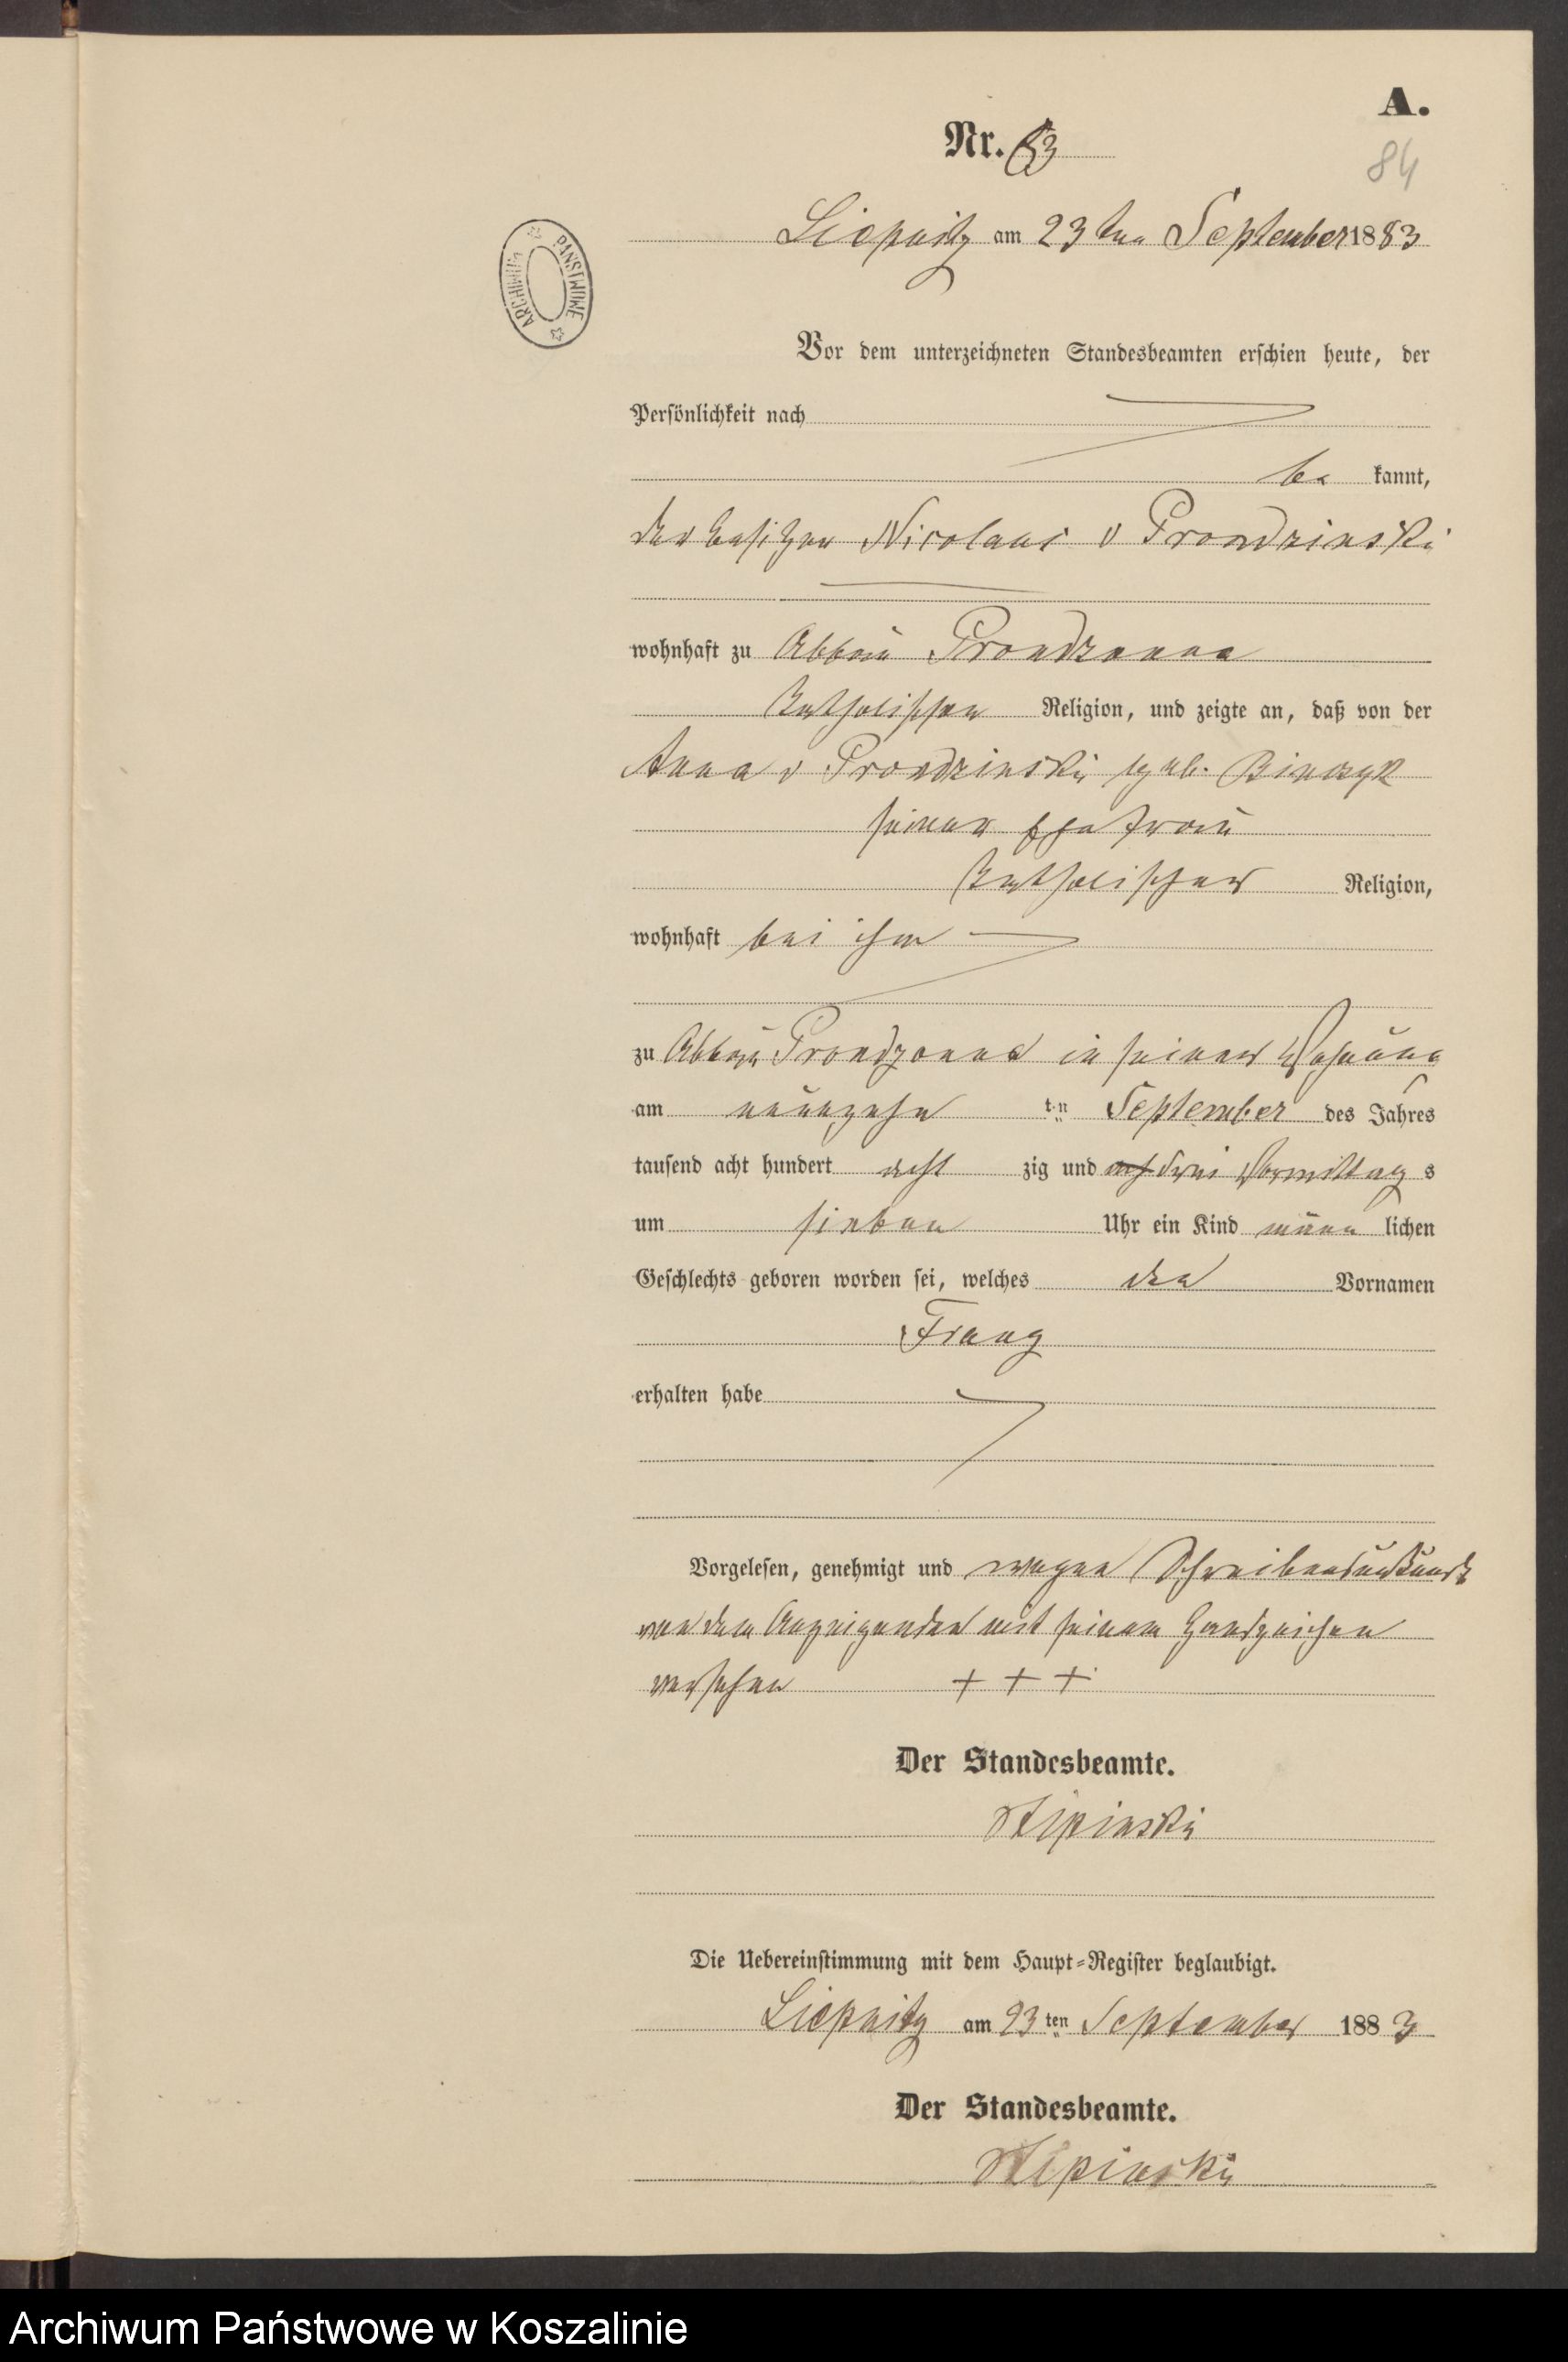 A.
Nr. 83
84
Liepnitz am 23ten September 1883
ARCHIWUM PAŃSTWOWE
Vor dem unterzeichneten Standesbeamten erschien heute, der
Persönlichkeit nach
be kannt,
der Besitzer Nicolaus v Prondzinski
wohnhaft zu Abbau Prondzonna
katholischer Religion, und zeigte an, daß von der
Anna v Prondzinski geb. Binczyk
seiner Ehefrau
katholischer Religion,
wohnhaft bei ihm
zu Abbau Prondzonna in seiner Wohnung
am neunzehn ten September des Jahres
tausend acht hundert acht zig und drei Vormittag s
um sieben Uhr ein Kind männ lichen
Geschlechts geboren worden sei, welches den Vornamen
Franz
erhalten habe
Vorgelesen, genehmigt und wegen Schreibensunkunde
von dem Anzeigenden mit seinem Handzeichen
versehen + + +
Der Standesbeamte.
Die Uebereinstimmung mit dem Haupt=Register beglaubigt.
Liepnitz am 23ten September 1883
Der Standesbeamte.
Archiwum Państwowe w Koszalinie